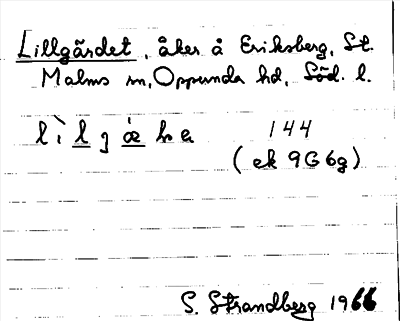 Lillgärdet, åker å Eriksberg, St.
Malms sn, Oppunda hd, Söd. l.
144
(ek 9G 6g)
S. Strandberg 1966